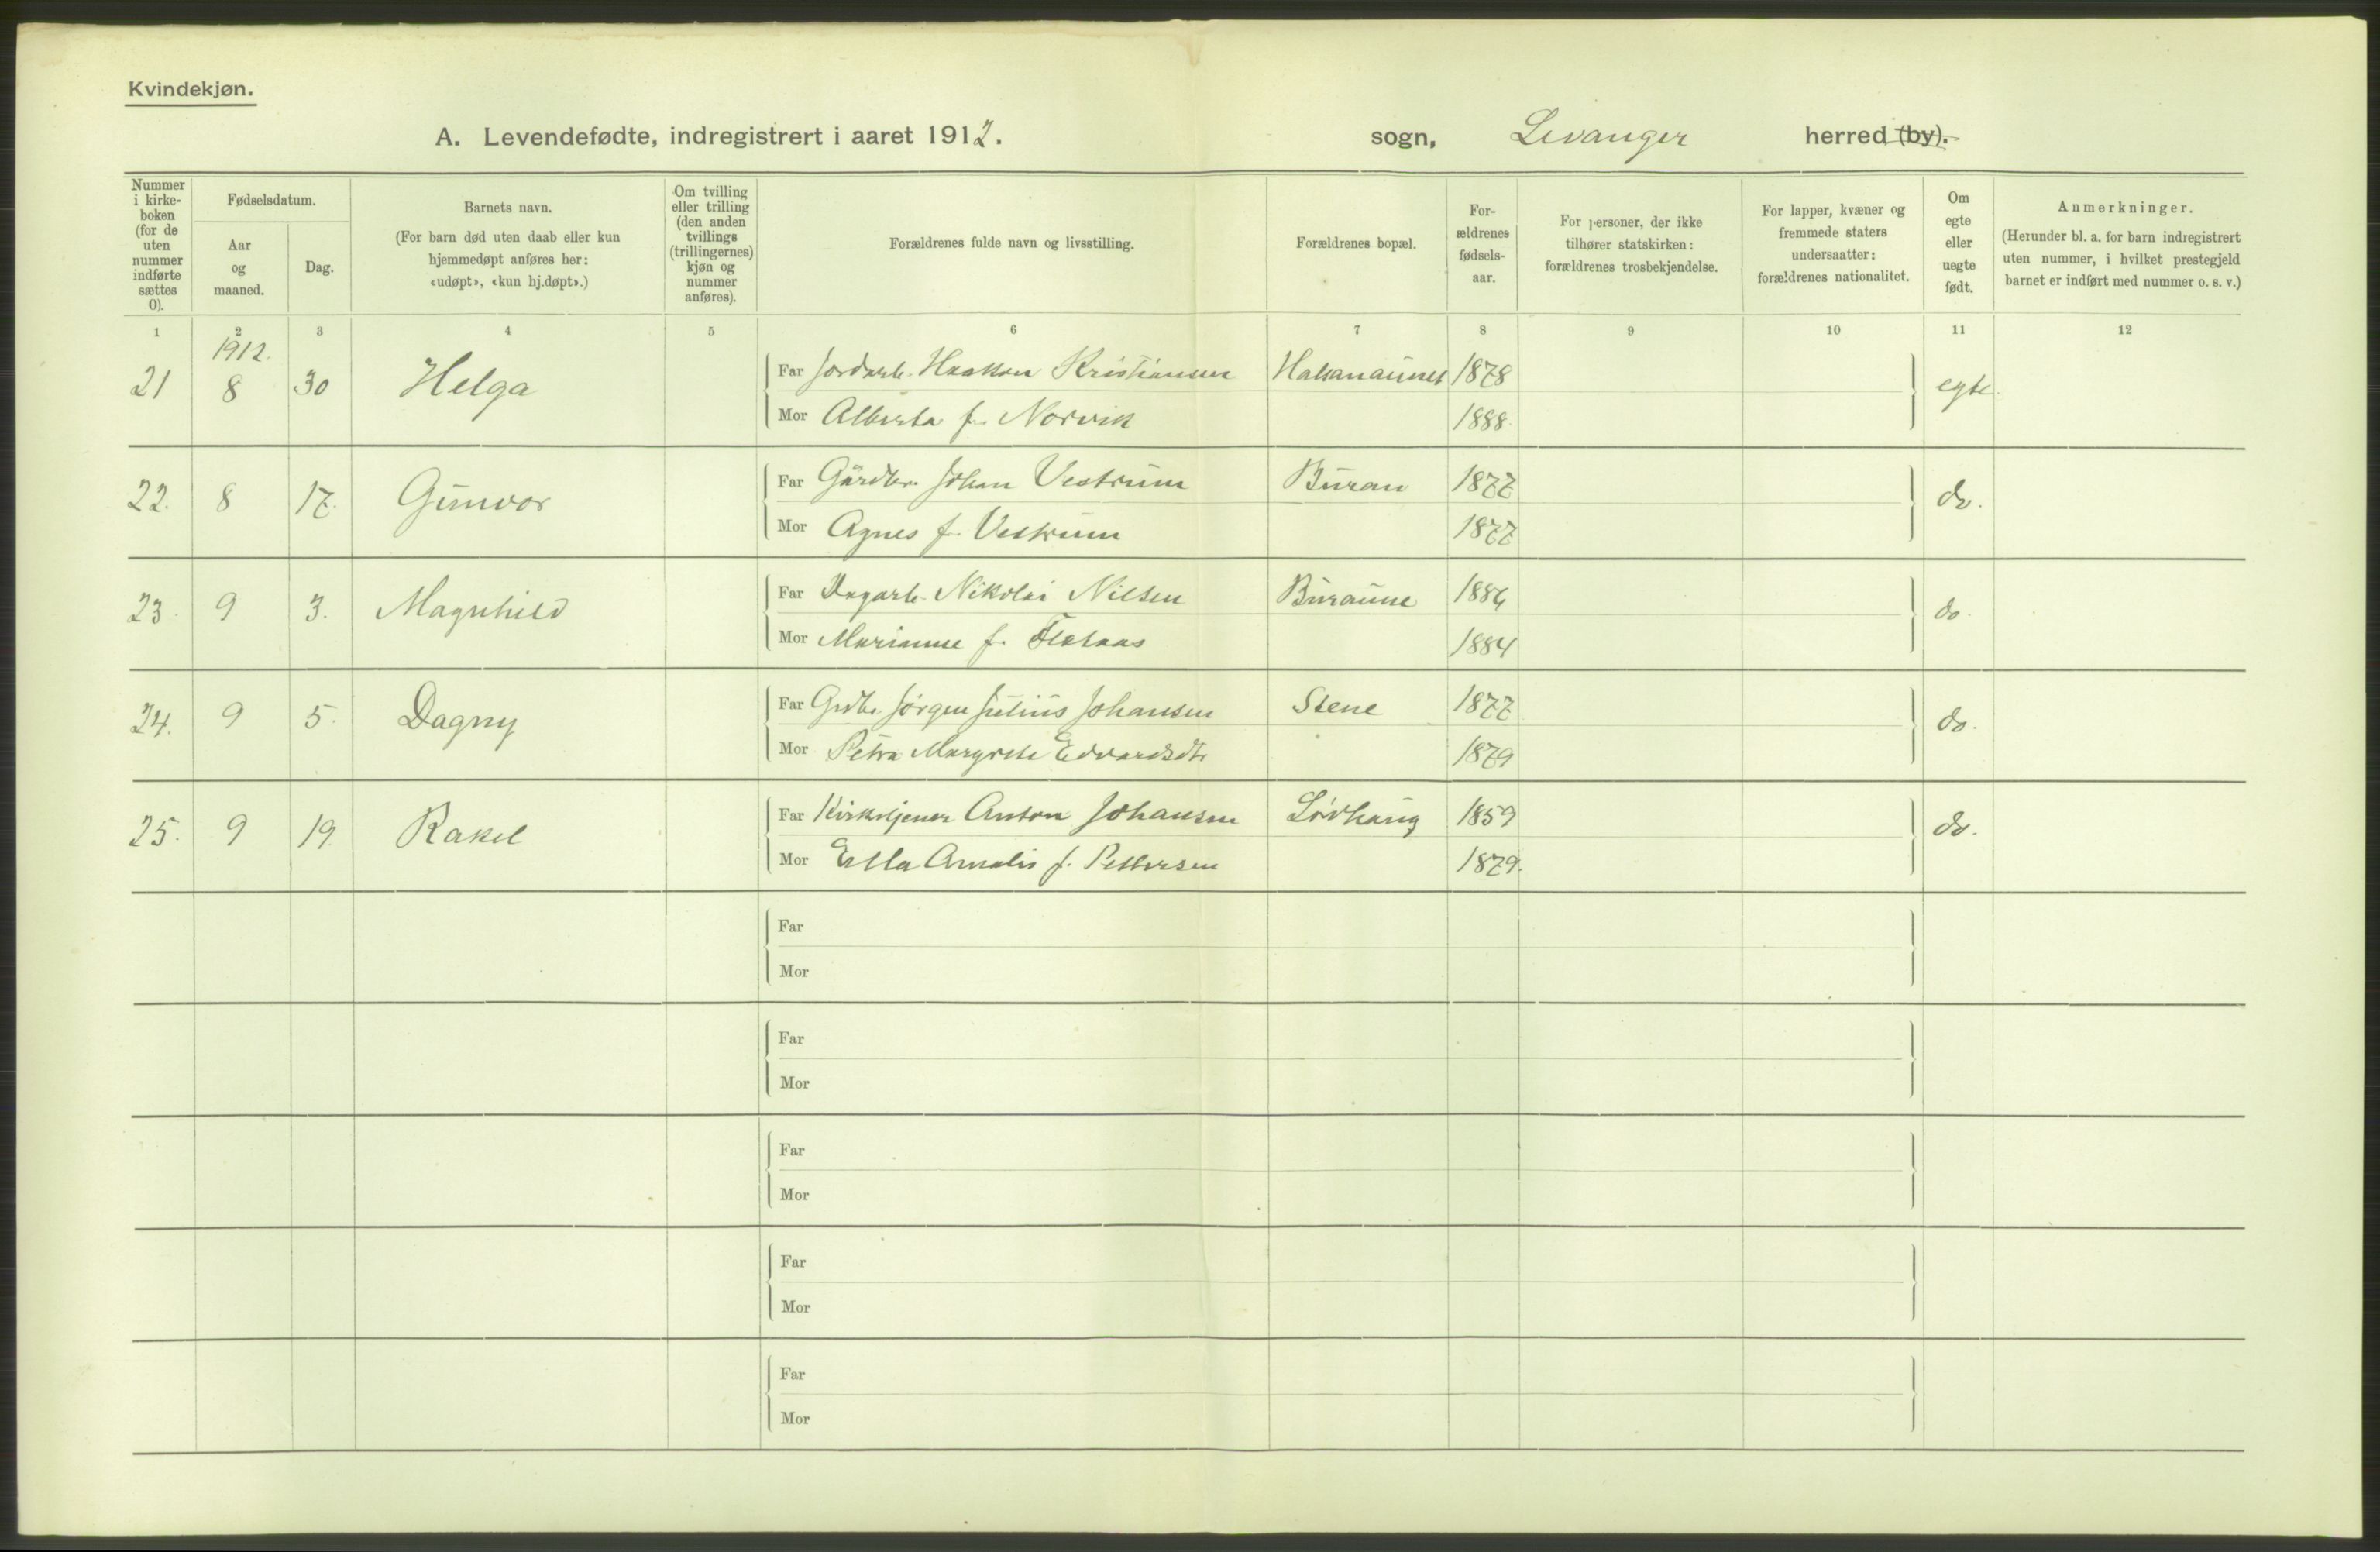 Kvindekjøn.
A. Levendefødte, indregistrert i aaret 1912. sogn, Levanger herred (by).
Nummer i kirke-boken (for de uten nummer indførte sættes 0).
Fødselsdatum.
Aar og maaned.
Dag.
Barnets navn.
(For barn død uten daab eller kun
hjemmedøpt anføres her:
«udøpt», «kun hj.døpt».)
Om tvilling
eller trilling
(den anden
tvillings
(trillingernes)
kjøn og
nummer
anføres).
Forældrenes fulde navn og livsstilling.
Forældrenes bopæl.
For-
ældrenes
fødsels-
aar.
For personer, der ikke
tilhører statskirken:
forældrenes trosbekjendelse.
For lapper, kvæner og
fremmede staters
undersaatter:
forældrenes nationalitet.
Om
egte
eller
uegte
født.
Anmerkninger.
(Herunder bl. a. for barn indregistrert
uten nummer, i hvilket prestegjeld
barnet er indført med nummer o. s. v.)
1 2 3 4 5 6 7 8 9 10 11 12
1912.
21 8 30 Helga Far Jordarb. Haakon Kristiansen 1878 egte
Mor Alberta f. Norvik 1888
22. 8 17. Gunvor Far Gårdbr. Johan Vestrum Buran 1877 do.
Mor Agnes f. Vestrum 1877
23. 9 3. Magnhild Far Dagarb. Nikolai Nilsen Buraune 1886 do.
Mor Marianne f. 1884
24. 9 5. Dagny Far Grdbr. Jørgen Julius Johansen Stene 1877 do.
Mor Petra Margrete Edvardsdtr 1879
25. 9 19. Rakel Far Kirketjener Anton Johansen Lövhaug 1859 do.
Mor Amalie f. Pettersen 1879.
Far
Mor
Far
Mor
Far
Mor
Far
Mor
Far
Mor